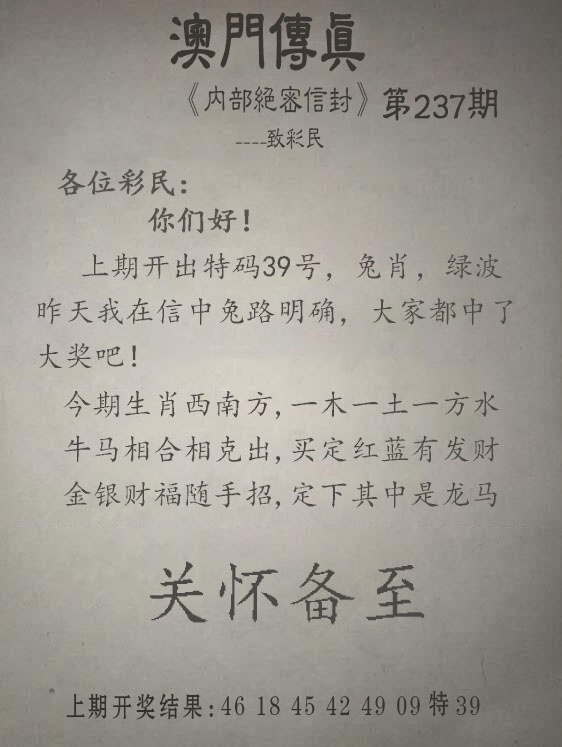 澳門傳眞
《内部絕密信封》第237期
----致彩民
各位彩民：
你们好！
上期开出特码39号，兔肖，绿波
昨天我在信中兔路明确，大家都中了
大奖吧！
今期生肖西南方,一木一土一方水
牛马相合相克出,买定红蓝有发财
金银财福随手招,定下其中是龙马
关怀备至
上期开奖结果:46 18 45 42 49 09 特39